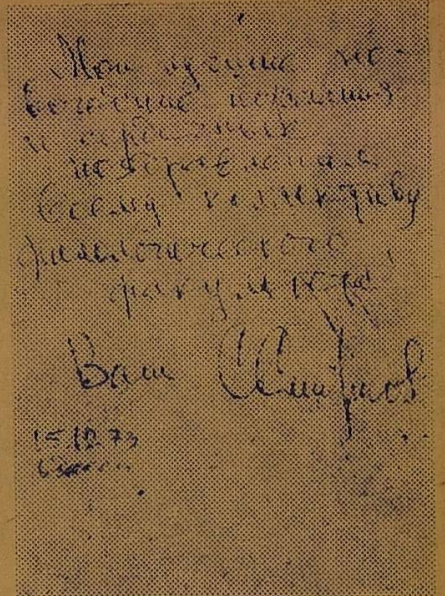 Мои лучшие но-
вогодние пожелания
и сердечные
поздравления
всему коллективу
филологического
факультета
Ваш
15.12.73